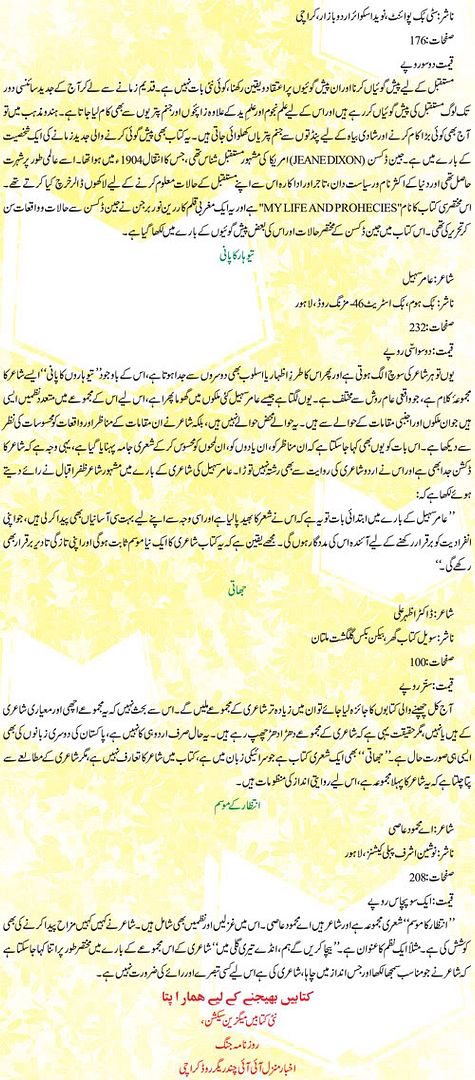 ناشر: سٹی بک پوائنٹ، نوید اسکوائر اردو بازار، کراچی
صفحات: 176
قیمت دو سو روپے
مستقبل کے لیے پیش گوئیاں کرنا اور ان پیش گوئیوں پر اعتقاد و یقین رکھنا، کوئی نئی بات نہیں ہے۔ قدیم زمانے سے لے کر آج کے جدید سائنسی دور
تک لوگ مستقبل کی پیش گوئیاں کر رہے ہیں اور اس کے لیے علم نجوم اور علم ید کے علاوہ زائچوں اور جنم پتریوں سے بھی کام لیا جاتا ہے۔ ہندو مذہب میں تو
آج بھی کوئی بڑا کام کرنے اور شادی بیاہ کے لیے پنڈتوں سے جنم پتریاں کھلوائی جاتی ہیں۔ یہ کتاب بھی پیش گوئی کرنے والی جدید زمانے کی ایک شخصیت
کے بارے میں ہے۔ جین ڈکسن (JEANE DIXON) امریکا کی مشہور مستقبل شناس تھی، جس کا انتقال 1904ء میں ہوا تھا۔ اسے عالمی طور پر شہرت
حاصل تھی اور دنیا کے اکثر نام ور سیاست دان، تاجر اور اداکار وہ اس سے اپنے مستقبل کے حالات معلوم کرنے کے لیے لاکھوں ڈالر خرچ کیا کرتے تھے۔
اس مختصر سی کتاب کا نام "MY LIFE AND PROPHECIES" ہے اور یہ ایک مغربی قلم کار رین نور برجن نے جین ڈکسن سے حالات و واقعات سن
کر تحریر کی تھی۔ اس کتاب میں جین ڈکسن کے مختصر حالات اور اس کی بعض پیش گوئیوں کے بارے میں لکھا گیا ہے۔
تیوہار کا پانی
شاعر: عامر سہیل
ناشر: بک ہوم، بک اسٹریٹ 46- مزنگ روڈ، لاہور
صفحات: 232
قیمت: دو سو اسّی روپے
یوں تو ہر شاعر کی سوچ الگ ہوتی ہے اور پھر اس کا طرز اظہار یا اسلوب بھی دوسروں سے جدا ہوتا ہے، اس کے باوجود ’’تیوہاروں کا پانی‘‘ ایسے شاعر کا
مجموعۂ کلام ہے، جو واقعی عام روش سے مختلف ہے۔ یوں لگتا ہے جیسے عامر سہیل کئی ملکوں میں گھوما پھرا ہے، اس لیے اس کے مجموعے میں متعدد نظمیں ایسی
ہیں جو ان ملکوں اور اجنبی مقامات کے حوالے سے ہیں۔ یہ حوالے محض حوالے نہیں ہیں، بلکہ شاعر نے ان مقامات کے مناظر اور واقعات کو محسوسات کی نظر
سے دیکھا ہے۔ اس بات کو یوں بھی کہا جا سکتا ہے کہ ان مناظر کو، ان یادوں کو، ان لمحوں کو محسوس کر کے شعری جامہ پہنایا گیا ہے، یہی وجہ ہے کہ شاعر کا
ڈکشن جدا بھی ہے اور اس نے اردو شاعری کی روایت سے بھی رشتہ نہیں توڑا۔ عامر سہیل کی شاعری کے بارے میں مشہور شاعر ظفر اقبال نے رائے دیتے
ہوئے لکھا ہے کہ:
’’عامر سہیل کے بارے میں ابتدائی بات تو یہ ہے کہ اس نے شعر کا بھید پا لیا ہے اور اسی وجہ سے اپنے لیے بہت سی آسانیاں بھی پیدا کر لی ہیں، جو اپنی
انفرادیت کو برقرار رکھنے کے لیے آئندہ اس کی مددگار ہوں گی۔ مجھے یقین ہے کہ یہ کتاب شاعری کا ایک نیا موسم ثابت ہوگی اور اپنی تازگی تا دیر برقرار بھی
رکھے گی۔‘‘
جھاتی
شاعر: ڈاکٹر اظہر علی
ناشر: سویل کتاب گھر، بیکن بکس گلگشت ملتان
صفحات: 100
قیمت: ستّر روپے
آج کل چھپنے والی کتابوں کا جائزہ لیا جائے تو ان میں زیادہ تر شاعری کے مجموعے ملیں گے۔ اس سے بحث نہیں کہ یہ مجموعے اچھی اور معیاری شاعری
کے ہیں یا نہیں مگر حقیقت یہی ہے کہ شاعری کے مجموعے دھڑا دھڑ چھپ رہے ہیں۔ یہ حال صرف اردو ہی کا نہیں ہے، پاکستان کی دوسری زبانوں کی بھی
ایسی ہی صورت حال ہے۔ ’’جھاتی‘‘ بھی ایک شعری کتاب ہے جو سرائیکی زبان میں ہے، کتاب میں شاعر کا تعارف نہیں ہے، مگر شاعری کے مطالعے سے
پتا چلتا ہے کہ یہ شاعر کا پہلا مجموعہ ہے، اس لیے روایتی انداز کی منظومات ہیں۔
انتظار کے موسم
شاعر: اے محمود عاصی
ناشر: نوشین اشرف پبلی کیشنز، لاہور
صفحات: 208
قیمت: ایک سو پچاس روپے
’’انتظار کا موسم‘‘ شعری مجموعہ ہے اور شاعر ہیں اے محمود عاصی۔ اس میں غزلیں اور نظمیں بھی شامل ہیں۔ شاعر نے کہیں کہیں مزاح پیدا کرنے کی بھی
کوشش کی ہے۔ مثلاً ایک نظم کا عنوان ہے۔ ’’بیچا کریں گے ہم، انڈے تیری گلی میں‘‘ شاعری کے اس مجموعے کے بارے میں مختصر طور پر اتنا کہا جا سکتا ہے
کہ شاعر نے جو مناسب سمجھا لکھا اور جس انداز میں چاہا، شاعری کی ہے اس لیے کسی تبصرے اور رائے کی ضرورت نہیں ہے۔
کتابیں بھیجنے کے لیے ہمارا پتا
نئی کتابیں میگزین سیکشن،
روزنامہ جنگ
اخبار منزل آئی آئی چندریگر روڈ کراچی